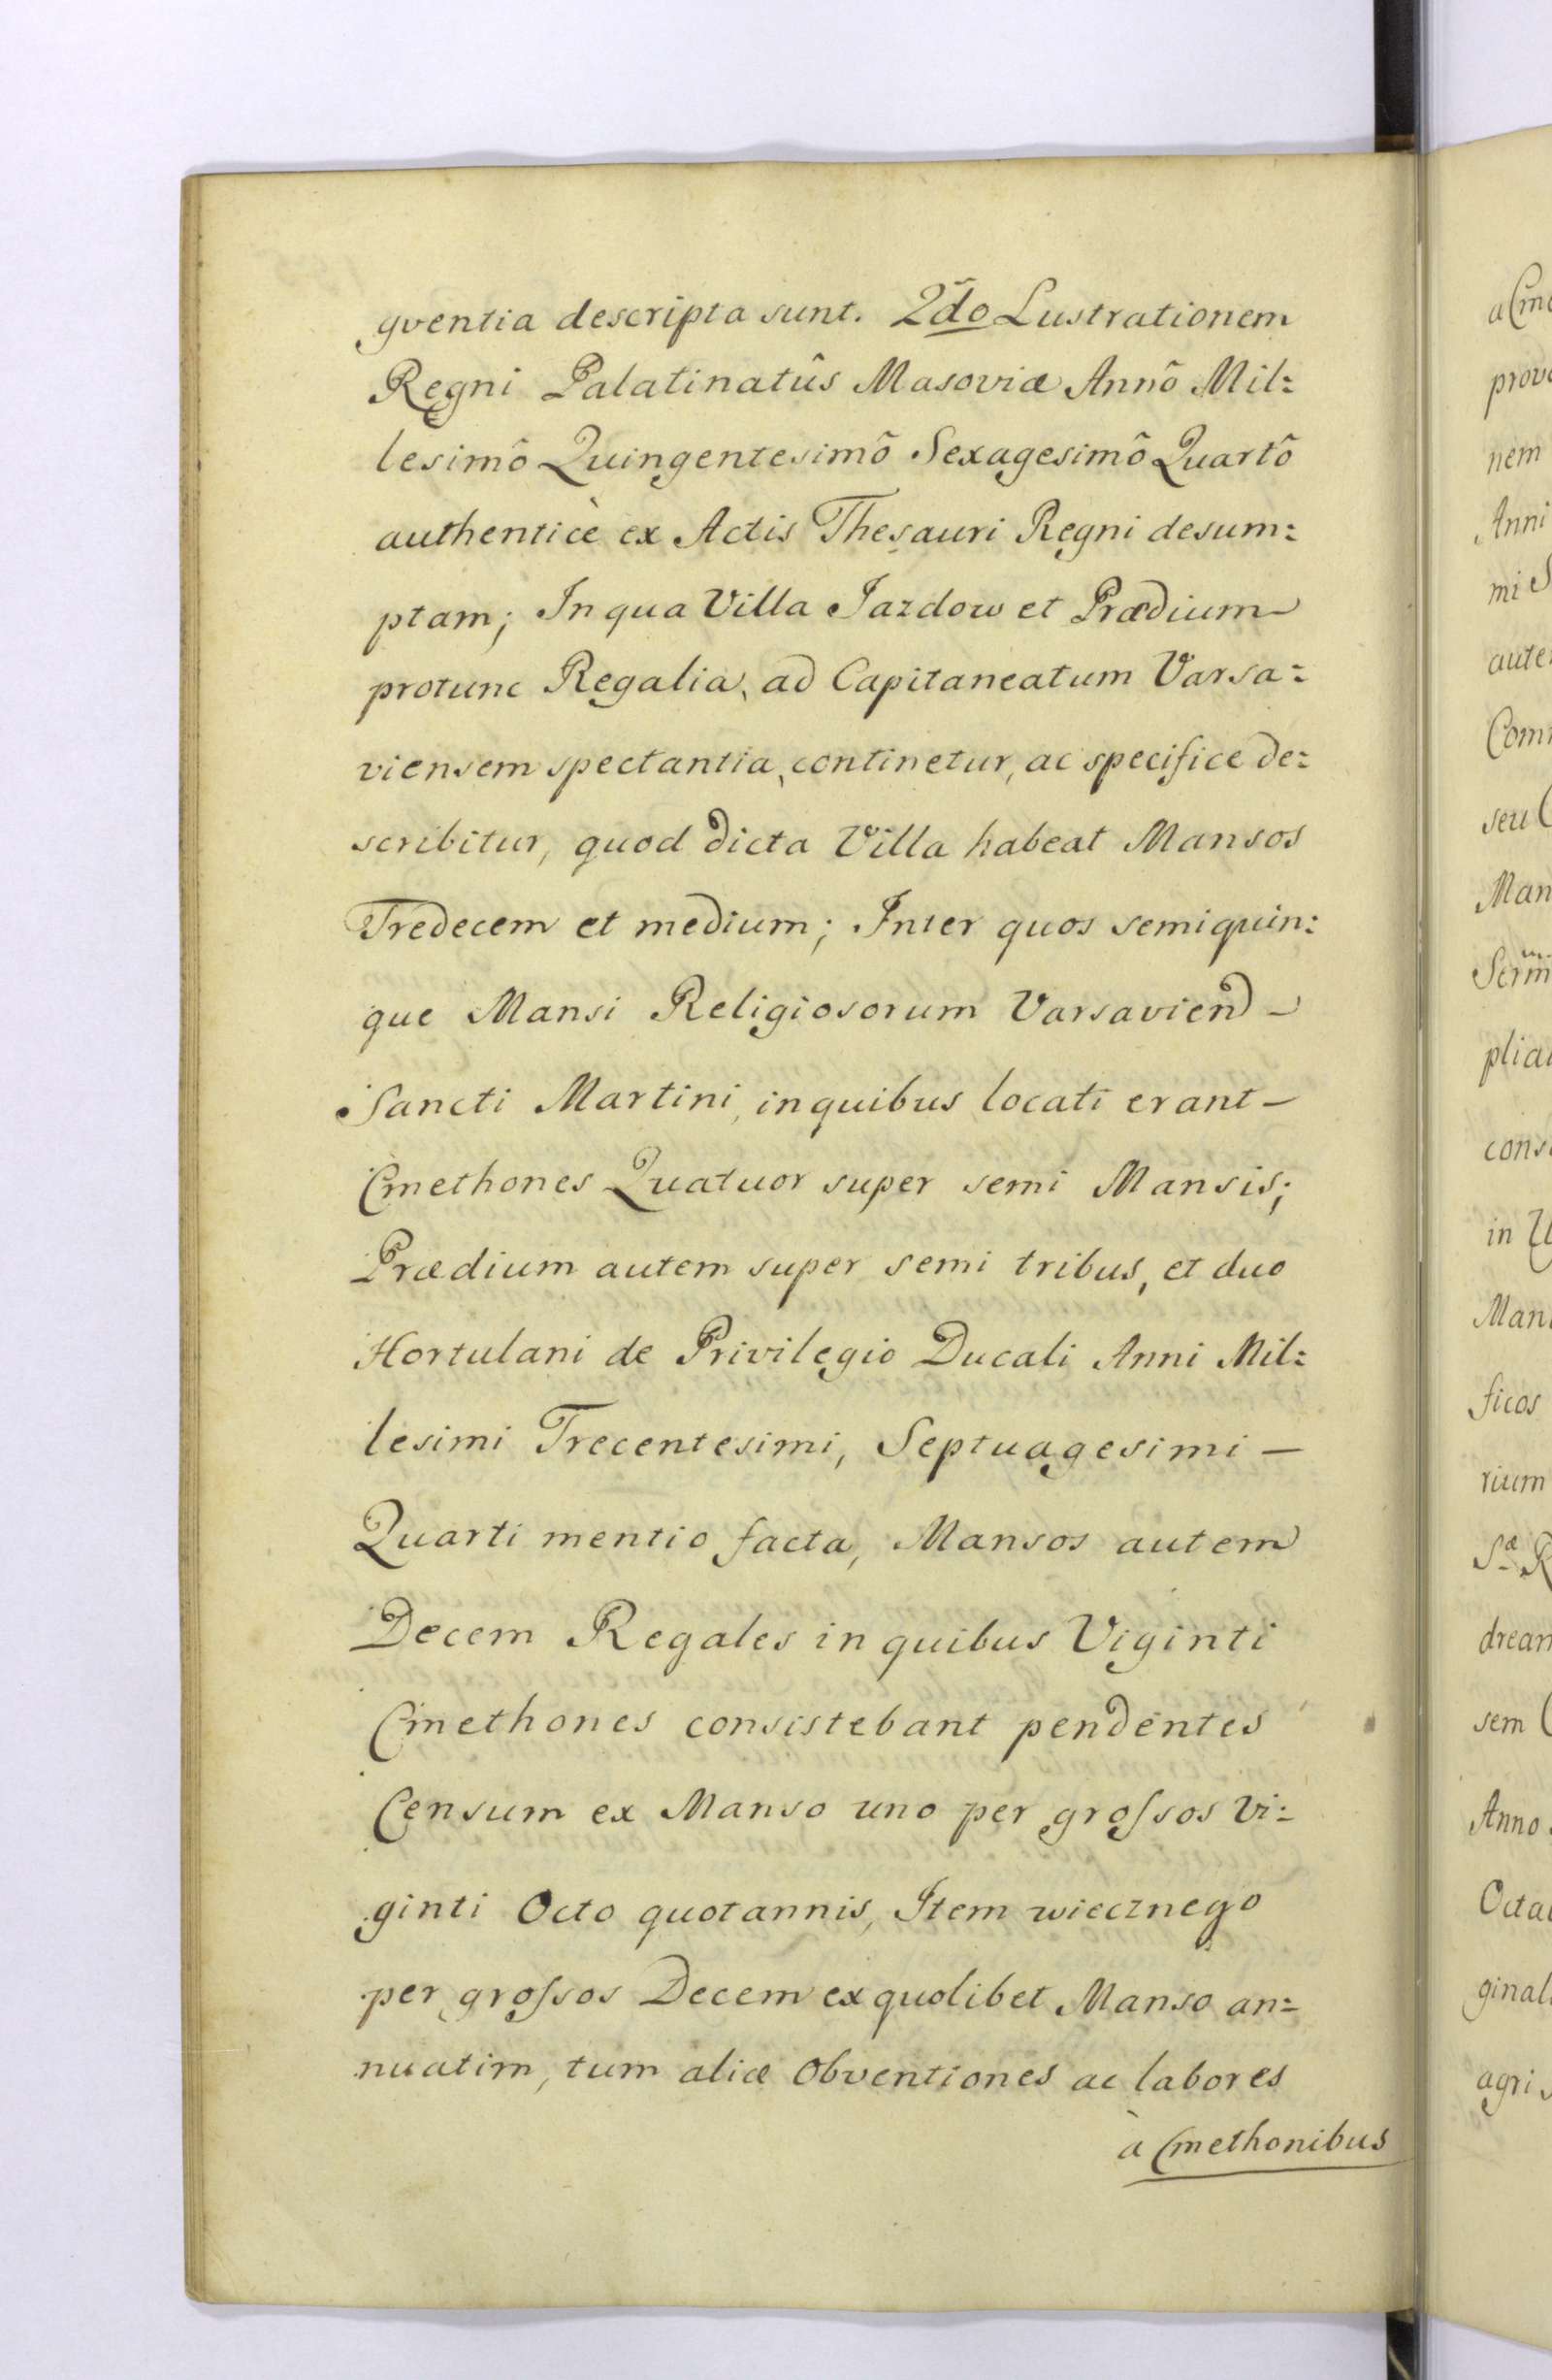 qventia descripta sunt. 2do Lustrationem
Regni Palatinatûs Masoviæ Annô Mil=
lesimô Quingentesimô Sexagesimô Quartô
authenticè ex Actis Thesauri Regni desum=
ptam; In qua Villa Jazdow et Prædium
protunc Regalia, ad Capitaneatum Varsa=
viensem spectantia, continetur, ac specifice de=
scribitur, quod dicta Villa habeat Mansos
Tredecem et medium; Inter quos semiquin=
que Mansi Religiosorum Varsavien –
Sancti Martini, in quibus locati erant –
Cmethones Quatuor super semi Mansis;
Prædium autem super semi tribus, et duo
Hortulani de Privilegio Ducali Anni Mil=
lesimi Trecentesimi, Septuagesimi –
Quarti mentio facta, Mansos autem
Decem Regales in quibus Viginti
Cmethones consistebant pendentes
Censum ex Manso uno per groſsos Vi=
ginti Octo quotannis, Item wiecznego
per groſsos Decem ex quolibet Manso an=
nuatim, tum aliæ Obventiones ac labores
à Cmethonibus
a Cme
prov
nem
Anni
mi S
aute
Com
seu
Man
Serm
plia
cons
in
Man
ficos
rium
Sæ R
drean
sem
Anno
Octa
ginal
agri